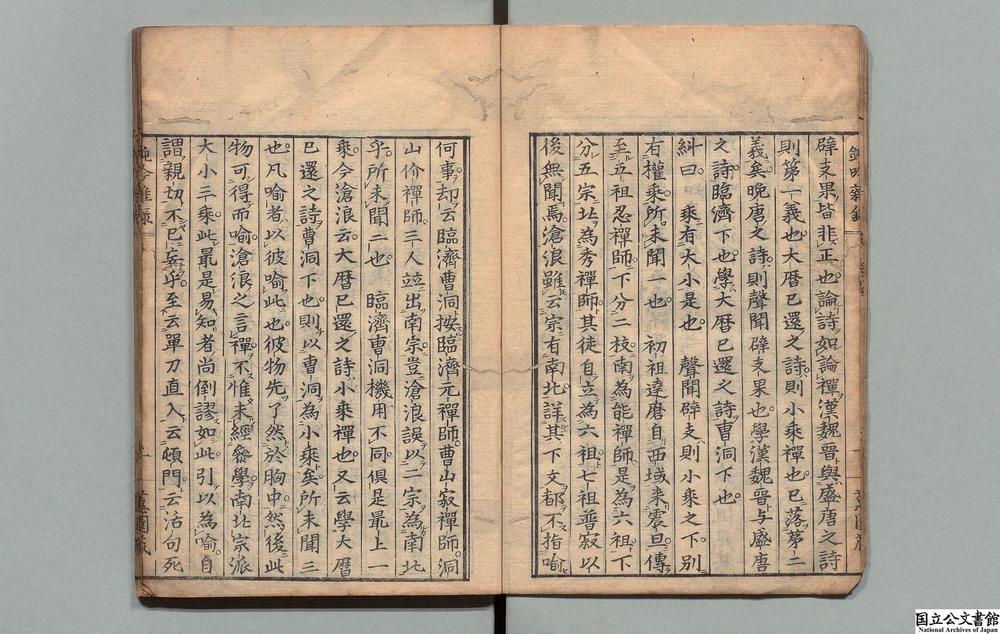 鈍吟雜錄
辟支果皆非正也論詩如論禪漢魏晉與盛唐之詩
則第一義也大暦已還之詩則小乘禪也已落第二
義矣晚唐之詩則聲聞辟支果也學漢魏晉与盛唐
之詩臨濟下也學大暦已還之詩曹洞下也
糾曰 乘有大小是也 聲聞辟支則小乘之下別
有權乘所未聞一也 初祖達磨自西域来震旦傳
至五祖忍禪師下分二枝南為能禪師是為六祖下
分五宗北為秀禪師其徒自立為六祖七祖普寂以
後無聞焉滄浪雖云宗有南北詳其下文都不指喻
何事却云臨濟曹洞按臨濟元禪師曹山寂禪師洞
山价禪師三人竝出南宗豈滄浪誤以二宗為南北
乎所未聞二也 臨濟曹洞機用不同俱是最上一
乘今滄浪云大暦已還之詩小乘禪也又云學大暦
已還之詩曹洞下也則以曹洞為小乘矣所未聞三
也凡喻者以彼喻此也彼物先了然於胸中然後此
物可得而喻滄浪之言禪不惟未經參學南北宗派
大小三乘此最是易知者尚倒謬如此引以為喻自
謂親切不已妄乎至云單刀直入云頓門云活句死
国立公文書館
National Archives of Japan